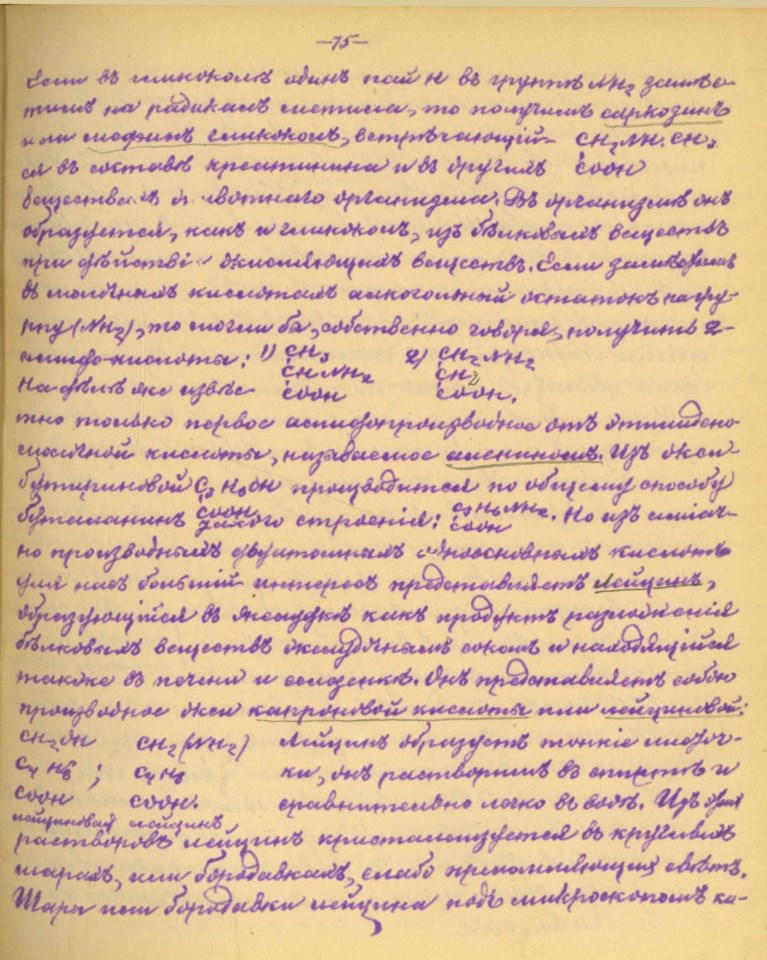 —75—
Если въ гликоколѣ одинъ пай H въ группѣ NH₂ замѣс-
тимъ на радикалъ метила, то получимъ саркозинъ
или метилъ гликоколъ, встрѣчающій- CH₂NH.CH₃
ся въ составѣ креатинина и въ другихъ COOH
веществахъ животнаго организма. Въ организмѣ онъ
образуется, какъ и гликоколъ, изъ бѣлковыхъ веществъ
при дѣйствіи окисляющихъ веществъ. Если
въ молочныхъ кислотахъ алкогольный остатокъ на гру-
ппу (NH₂), то могли бы, собственно говоря, получить 2-
амидо-кислоты: 1) CH₃ 2) CH₂NH₂
CHNH₂ CH₂
На дѣлѣ же извѣс- COOH COOH.
тно только первое амидопроизводное отъ этилидено-
молочной кислоты, называемое аланиномъ. Изъ окси-
бутириновой C₃H₆OH производится по общему способу
COOH
буталанинъ такого строенія: C₃H₆NH₂. Но изъ аміач-
COOH
но производныхъ двуатомныхъ одноосновныхъ кислотъ
для насъ большій интересъ представляетъ Лейцинъ,
образующійся въ желудкѣ какъ продуктъ разложенія
бѣлковыхъ веществъ желудочнымъ сокомъ и находящійся
также въ печени и селезенкѣ. Онъ представляетъ собою
производное окси капроновой кислоты или лейциновой:
CH₂OH CH₂(NH₂) Лейцинъ образуетъ тонкіе листоч-
C₄H₈ ; C₄H₈ ки, онъ растворимъ въ спиртѣ и
COOH COOH. сравнительно легко въ водѣ. Изъ
лейциновая лейцинъ
растворовъ лейцинъ кристаллизуется въ круглыхъ
шарахъ, или бородавкахъ, слабо преломляющихъ свѣтъ.
Шары или бородавки лейцина подъ микроскопомъ ка-